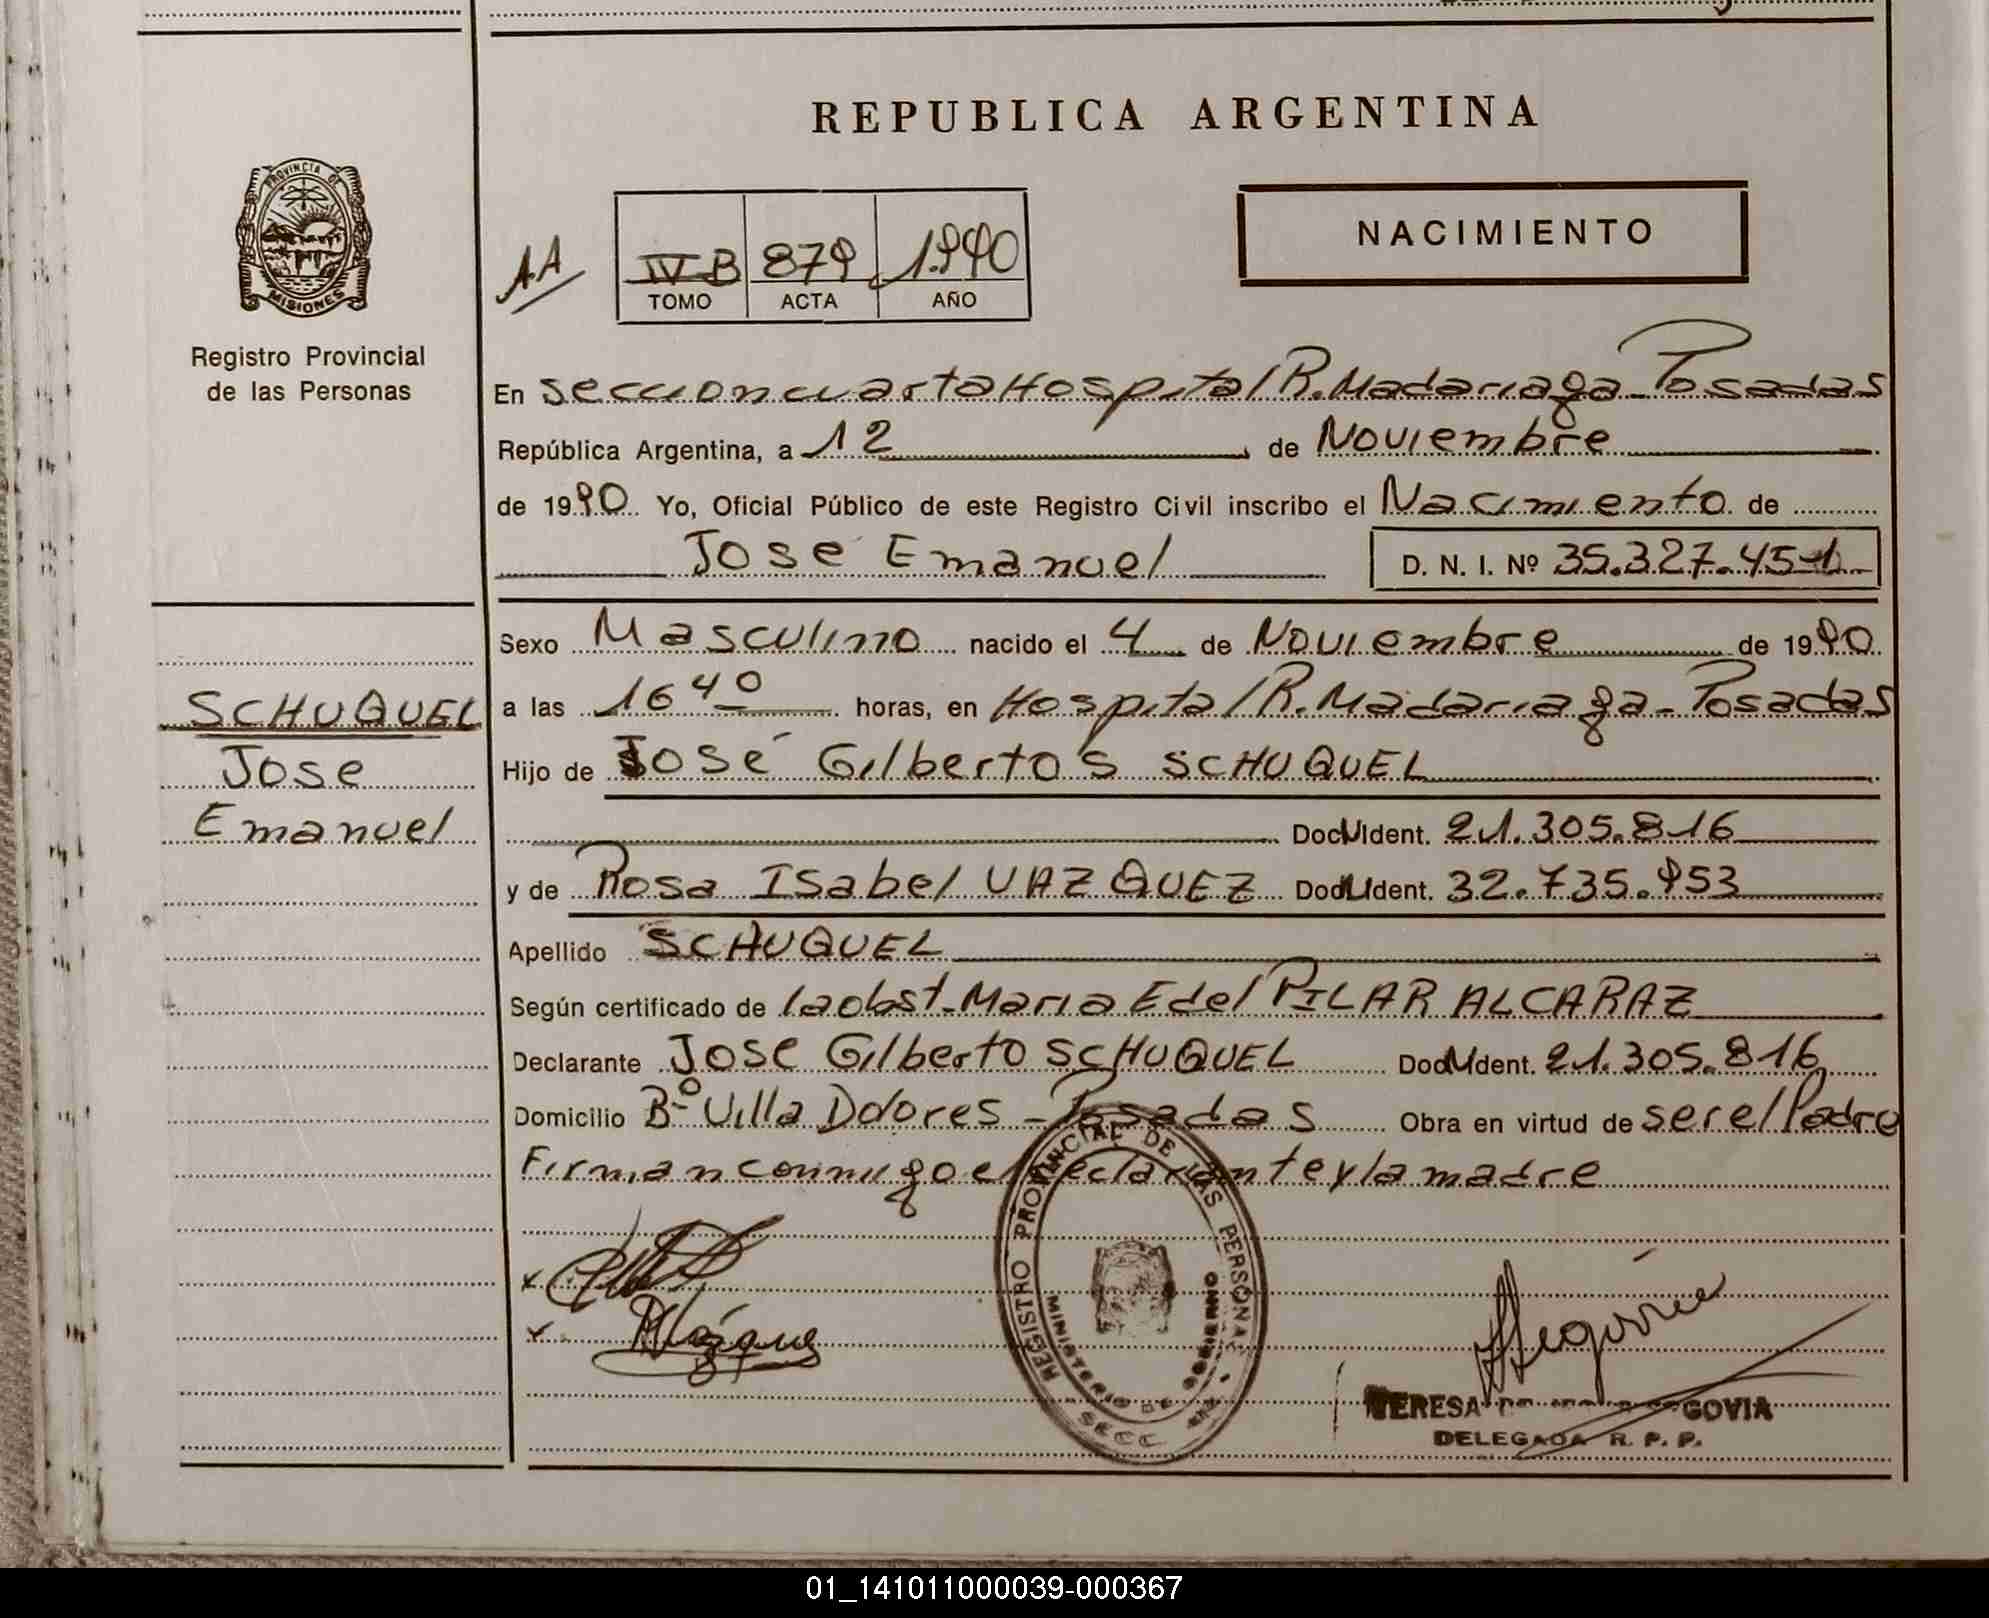 REPUBLICA ARGENTINA
PROVINCIA DE
MISIONES
Registro Provincial
de las Personas
NACIMIENTO
AA
IV B 879 1.990
TOMO ACTA AÑO
En Sección cuarta Hospital R. Madariaga - Posadas
República Argentina, a 12 de Noviembre
de 1990 Yo, Oficial Público de este Registro Civil inscribo el Nacimiento de
José Emanuel D. N. I. Nº 35.327.451
Sexo Masculino nacido el 4 de Noviembre de 1990
a las 16 40 horas, en Hospital R. Madariaga - Posadas
Hijo de José Gilberto S SCHUQUEL
DocUIdent. 21.305.816
y de Rosa Isabel VAZQUEZ DocUIdent. 32.735.953
Apellido SCHUQUEL
Según certificado de la obst. Maria E del PILAR ALCARAZ
Declarante José Gilberto SCHUQUEL DocUIdent. 21.305.816
Domicilio Bº Villa Dolores - Posadas Obra en virtud de ser el Padre
Firman conmigo el declarante y la madre
SCHUQUEL
José
Emanuel
REGISTRO PROVINCIAL DE LAS PERSONAS
MINISTERIO DE GOBIERNO
SECC.
TERESA GOVIA
DELEGADA R. P. P.
01_141011000039-000367